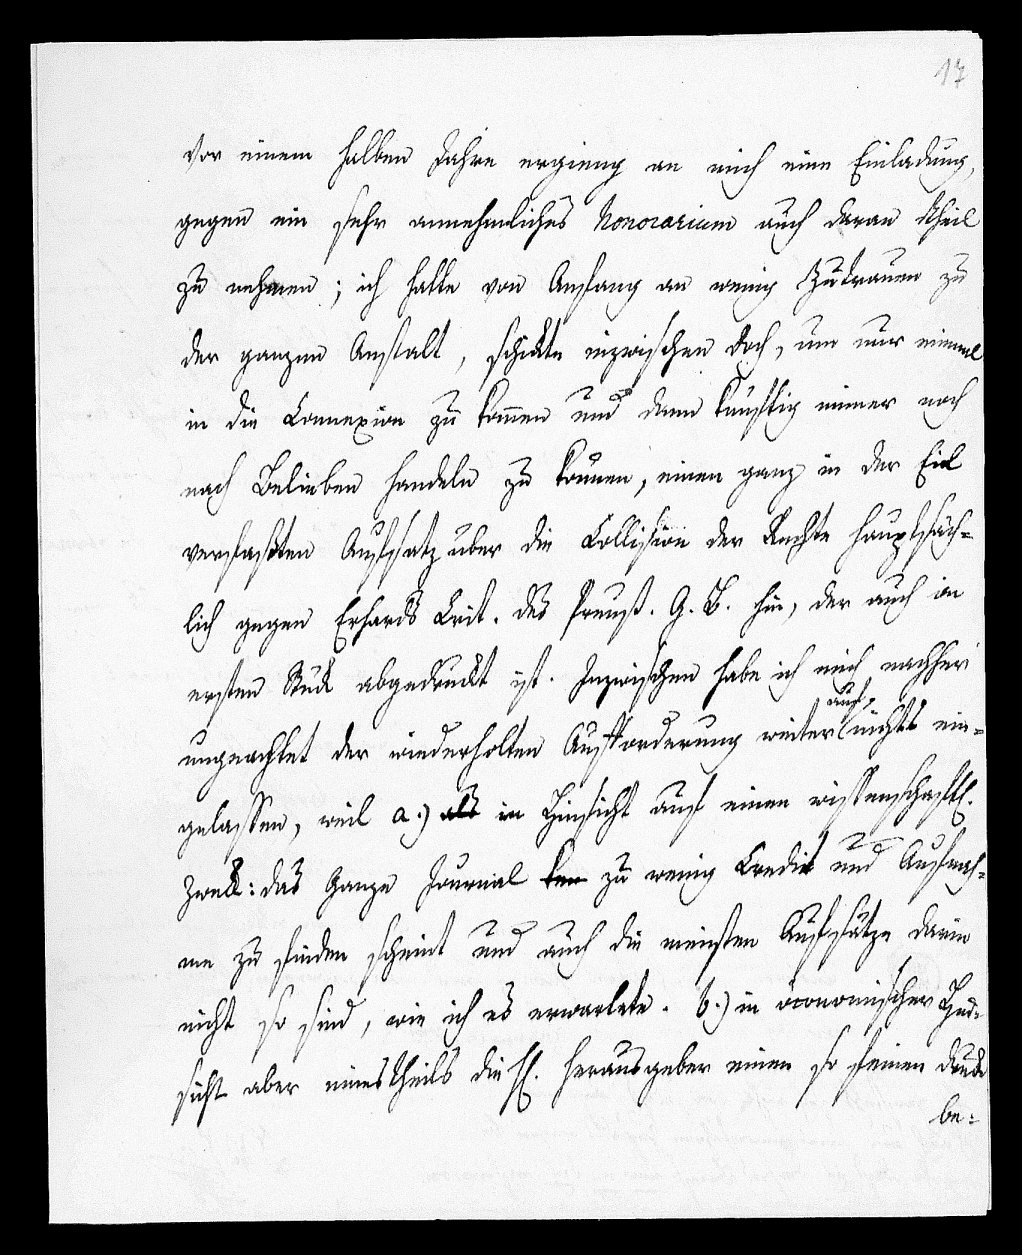 17
vor einem halben Jahre ergieng an mich eine Einladung,
gegen ein sehr annehmliches Honorarium auch daran Theil
zu nehmen; ich hatte von Anfang an wenig Zutrauen zu
der ganzen Anstalt, schickte inzwischen doch, um nur einmal
in die Connexion zu kom̄en und dann künftig immer noch
nach Belieben handeln zu können, einen ganz in der Eil
verfaßten Aufsatz über die Collision der Rechte hauptsäch-
lich gegen Erhards Crit. des Preuß. G. B. hin, der auch im
ersten Stück abgedruckt ist. Inzwischen habe ich mich nachher
ungeachtet der wiederholten Aufforderung weiter auf nichts ein-
gelassen, weil a.) als in Hinsicht auf einen wissenschaftl.
Zweck: das ganze Journal zu wenig Credit und Aufnah-
me zu finden scheint und auch die meisten Aufsätze darin
nicht so sind, wie ich es erwartete. b.) in öconomischer Hin-
sicht aber einestheils die H. Herausgeber einen so feinen Druck
be-